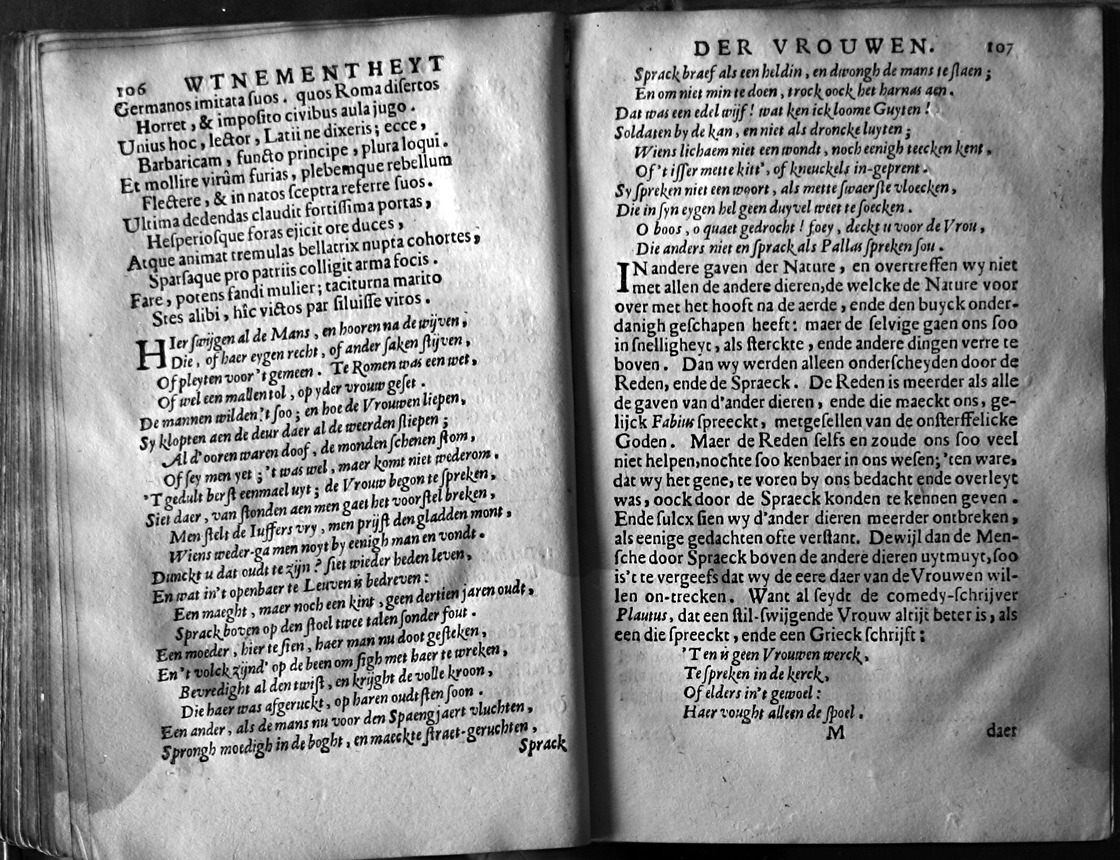 106 WTNEMENTHEYT
Germanos imitata ſuos. quos Roma diſertos
Horret, & impoſito civibus aula jugo.
Unius hoc, lector, Latii ne dixeris; ecce,
Barbaricam, functo principe, plura loqui.
Et mollire virûm furias, plebemque rebellum
Flectere, & in natos ſceptra referre ſuos.
Ultima dedendas claudit fortiſſima portas,
Heſperioſque foras ejicit ore duces,
Atque animat tremulas bellatrix nupta cohortes,
Sparſaque pro patriis colligit arma focis.
Fare, potens fandi mulier; taciturna marito
Stes alibi, hîc victos par ſiluiſſe viros.
HIer ſwijgen al de Mans, en hooren na de wijven;
Die, of haer eygen recht, of ander ſaken ſtijven,
Of pleyten voor 't gemeen. Te Romen was een wet,
Of wel een mallen tol, op yder vrouw geſet.
De mannen wilden't ſoo; en hoe de Vrouwen liepen,
Sy klopten aen de deur daer al de weerden ſliepen;
Al d'ooren waren doof, de monden ſchenen ſtom,
Of ſey men yet; 't was wel, maer komt niet wederom.
'T gedult berſt eenmael uyt; de Vrouw begon te ſpreken,
Siet daer, van ſtonden aen men gaet het voorſtel breken,
Men ſtelt de Iuffers vry, men prijſt den gladden mont,
Wiens weder-ga men noyt by eenigh man en vondt.
Dunckt u dat oudt te zijn? ſiet wieder heden leven,
En wat in't openbaer te Leuven is bedreven:
Een maeght, maer noch een kint, geen dertien jaren oudt,
Sprack boven op den ſtoel twee talen ſonder fout.
Een moeder, hier te ſien, haer man nu doot geſteken,
En 't volck zijnd' op de been om ſigh met haer te wreken,
Bevredight al den twiſt, en krijght de volle kroon,
Die haer was afgeruckt, op haren oudtſten ſoon.
Een ander, als de mans nu voor den Spaengjaert vluchten,
Sprongh moedigh in de boght, en maeckte ſtraet-geruchten,
Sprack
DER VROUWEN. 107
Sprack braef als een heldin, en dwongh de mans te ſlaen;
En om niet min te doen, trock oock het harnas aen.
Dat was een edel wijf! wat ken ick loome Guyten!
Soldaten by de kan, en niet als droncke luyten;
Wiens lichaem niet een wondt, noch eenigh teecken kent,
Of 't iſſer mette kitt', of kneuckels in-geprent.
Sy ſpreken niet een woort, als mette ſwaerſte vloecken,
Die in ſyn eygen hel geen duyvel weet te ſoecken.
O boos, o quaet gedrocht! foey, deckt u voor de Vrou,
Die anders niet en ſprack als Pallas ſpreken ſou.
IN andere gaven der Nature, en overtreffen wy niet
met allen de andere dieren, de welcke de Nature voor
over met het hooft na de aerde, ende den buyck onder-
danigh geſchapen heeft: maer de ſelvige gaen ons ſoo
in ſnelligheyt, als ſterckte, ende andere dingen verre te
boven. Dan wy werden alleen onderſcheyden door de
Reden, ende de Spraeck. De Reden is meerder als alle
de gaven van d'ander dieren, ende die maeckt ons, ge-
lijck Fabius ſpreeckt, metgeſellen van de onſterffelicke
Goden. Maer de Reden ſelfs en zoude ons ſoo veel
niet helpen, nochte ſoo kenbaer in ons weſen; 'ten ware,
dat wy het gene, te voren by ons bedacht ende overleyt
was, oock door de Spraeck konden te kennen geven.
Ende ſulcx ſien wy d'ander dieren meerder ontbreken,
als eenige gedachten ofte verſtant. Dewijl dan de Men-
ſche door Spraeck boven de andere dieren uytmuyt, ſoo
is't te vergeefs dat wy de eere daer van de Vrouwen wil-
len on-trecken. Want al ſeydt de comedy-ſchrijver
Plautus, dat een ſtil-ſwijgende Vrouw altijt beter is, als
een die ſpreeckt, ende een Grieck ſchrijft:
'Ten is geen Vrouwen werck,
Te ſpreken in de kerck,
Of elders in't gewoel:
Haer vought alleen de ſpoel.
M daer